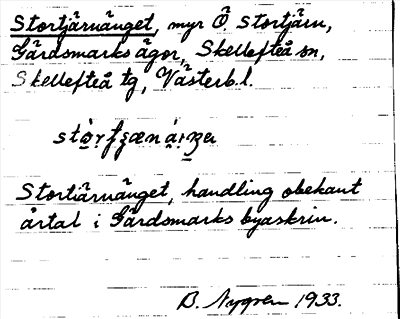 Stortjärnänget, myr Ö Stortjärn,
Gärdsmarks ägor, Skellefteå sn,
Skellefteå tg, Västerb. l.
Stortiärnänget, handling obekant
årtal i Gärdsmarks byaskrin.
B. Nygren 1933.